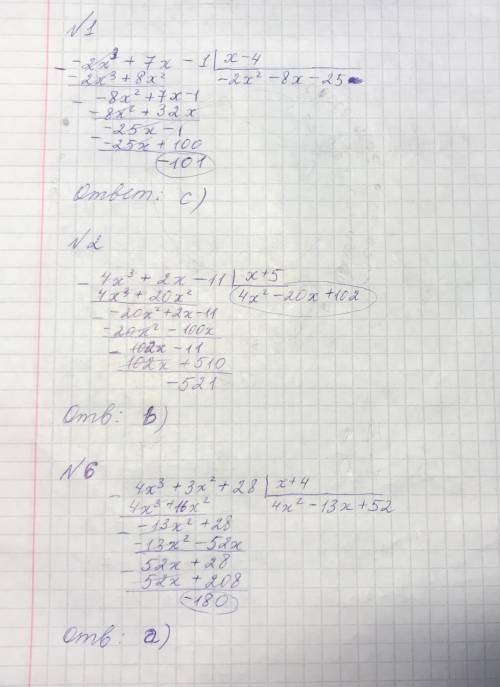 №1
- -2x³ + 7x - 1 | x-4
-2x³ + 8x² -2x² - 8x - 25
- -8x² + 7x - 1
-8x² + 32x
- -25x - 1
-25x + 100
-101
Ответ: c)
№2
- 4x³ + 2x - 11 | x+5
4x³ + 20x² 4x² - 20x + 102
- -20x² + 2x - 11
-20x² - 100x
- 102x - 11
102x + 510
-521
Отв: b)
№6
- 4x³ + 3x² + 28 | x+4
4x³ + 16x² 4x² - 13x + 52
- -13x² + 28
-13x² - 52x
- 52x + 28
52x + 208
-180
Отв: a)